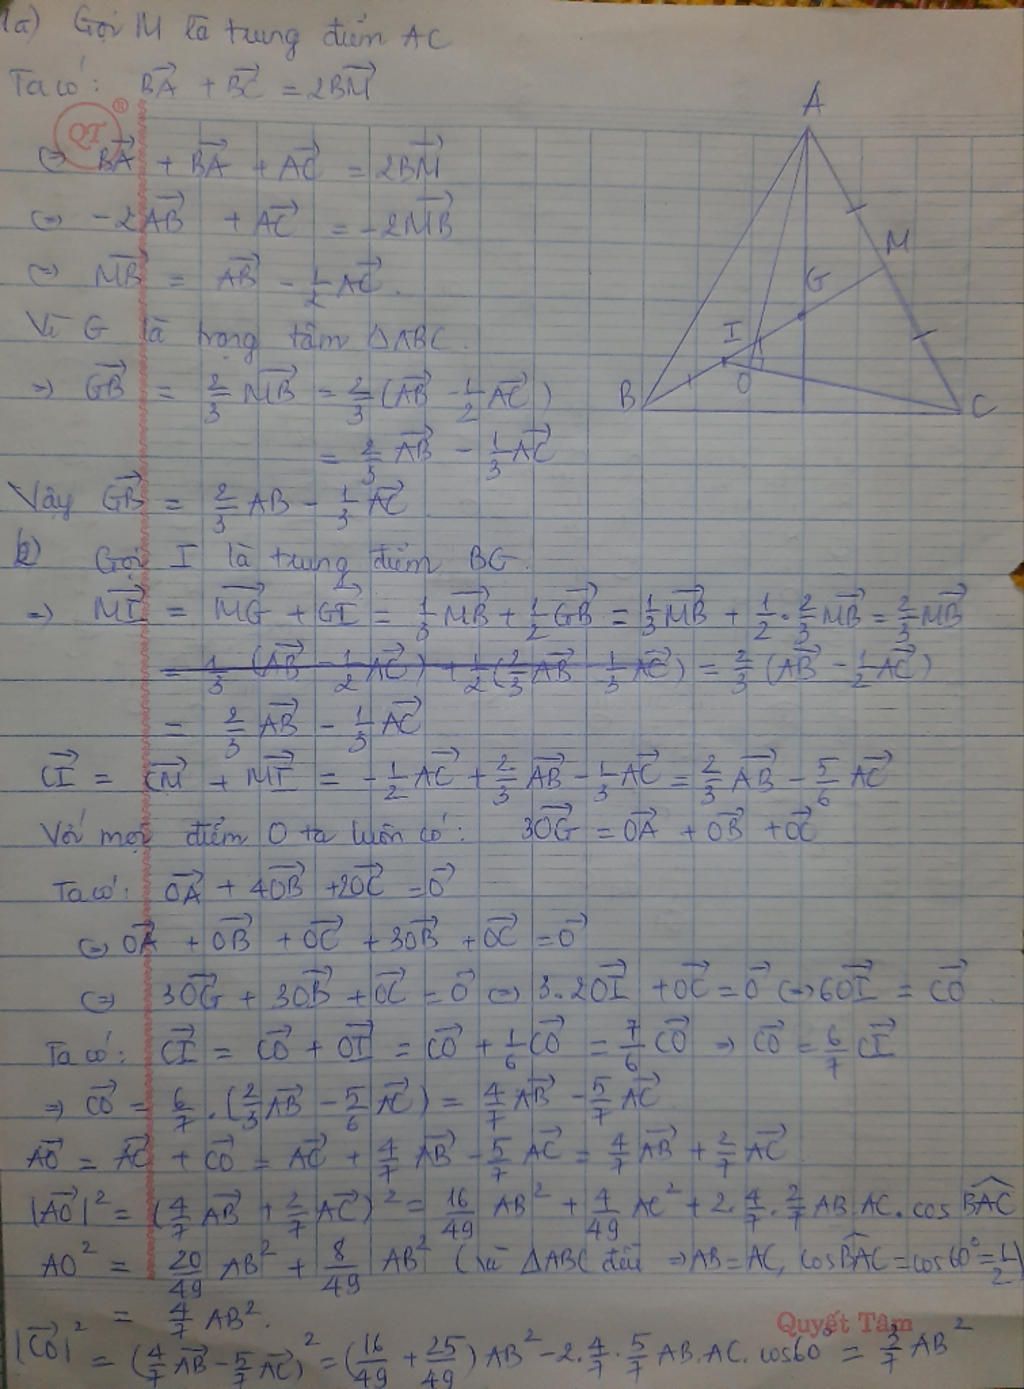 1a) Gọi M là trung điểm AC
Ta có: \overrightarrow{BA} + \overrightarrow{BC} = 2\overrightarrow{BM}
QT ®
⇔ \overrightarrow{BA} + \overrightarrow{BA} + \overrightarrow{AC} = 2\overrightarrow{BM}
⇔ -2\overrightarrow{AB} + \overrightarrow{AC} = -2\overrightarrow{MB}
⇔ \overrightarrow{MB} = \overrightarrow{AB} - \frac{1}{2}\overrightarrow{AC}.
Vì G là trọng tâm ΔABC.
⇒ \overrightarrow{GB} = \frac{2}{3}\overrightarrow{MB} = \frac{2}{3}(\overrightarrow{AB} - \frac{1}{2}\overrightarrow{AC})
= \frac{2}{3}\overrightarrow{AB} - \frac{1}{3}\overrightarrow{AC}
Vậy \overrightarrow{GB} = \frac{2}{3}AB - \frac{1}{3}\overrightarrow{AC}
A
M
G
I
O
B
C
b) Gọi I là trung điểm BG.
⇒ \overrightarrow{MI} = \overrightarrow{MG} + \overrightarrow{GI} = \frac{1}{3}\overrightarrow{MB} + \frac{1}{2}\overrightarrow{GB} = \frac{1}{3}\overrightarrow{MB} + \frac{1}{2}.\frac{2}{3}\overrightarrow{MB} = \frac{2}{3}\overrightarrow{MB}
= \frac{1}{3}(\overrightarrow{AB} - \frac{1}{2}\overrightarrow{AC}) + \frac{1}{2}(\frac{2}{3}\overrightarrow{AB} - \frac{1}{3}\overrightarrow{AC}) = \frac{2}{3}(\overrightarrow{AB} - \frac{1}{2}\overrightarrow{AC})
= \frac{2}{3}\overrightarrow{AB} - \frac{1}{3}\overrightarrow{AC}
\overrightarrow{CI} = \overrightarrow{CM} + \overrightarrow{MI} = -\frac{1}{2}\overrightarrow{AC} + \frac{2}{3}\overrightarrow{AB} - \frac{1}{3}\overrightarrow{AC} = \frac{2}{3}\overrightarrow{AB} - \frac{5}{6}\overrightarrow{AC}
Với mọi điểm O ta luôn có: 3\overrightarrow{OG} = \overrightarrow{OA} + \overrightarrow{OB} + \overrightarrow{OC}
Ta có: \overrightarrow{OA} + 4\overrightarrow{OB} + 2\overrightarrow{OC} = \overrightarrow{0}
⇔ \overrightarrow{OA} + \overrightarrow{OB} + \overrightarrow{OC} + 3\overrightarrow{OB} + \overrightarrow{OC} = \overrightarrow{0}
⇔ 3\overrightarrow{OG} + 3\overrightarrow{OB} + \overrightarrow{OC} = \overrightarrow{0} ⇔ 3.2\overrightarrow{OI} + \overrightarrow{OC} = \overrightarrow{0} ⇔ 6\overrightarrow{OI} = \overrightarrow{CO}.
Ta có: \overrightarrow{CI} = \overrightarrow{CO} + \overrightarrow{OI} = \overrightarrow{CO} + \frac{1}{6}\overrightarrow{CO} = \frac{7}{6}\overrightarrow{CO} ⇒ \overrightarrow{CO} = \frac{6}{7}\overrightarrow{CI}
⇒ \overrightarrow{CO} = \frac{6}{7}.(\frac{2}{3}\overrightarrow{AB} - \frac{5}{6}\overrightarrow{AC}) = \frac{4}{7}\overrightarrow{AB} - \frac{5}{7}\overrightarrow{AC}
\overrightarrow{AO} = \overrightarrow{AC} + \overrightarrow{CO} = \overrightarrow{AC} + \frac{4}{7}\overrightarrow{AB} - \frac{5}{7}\overrightarrow{AC} = \frac{4}{7}\overrightarrow{AB} + \frac{2}{7}\overrightarrow{AC}
|\overrightarrow{AO}|^2 = (\frac{4}{7}\overrightarrow{AB} + \frac{2}{7}\overrightarrow{AC})^2 = \frac{16}{49}AB^2 + \frac{4}{49}AC^2 + 2.\frac{4}{7}.\frac{2}{7}AB.AC.cos\widehat{BAC}
AO^2 = \frac{20}{49}AB^2 + \frac{8}{49}AB^2 (vì ΔABC đều ⇒ AB = AC, cos\widehat{BAC} = cos60° = \frac{1}{2})
= \frac{4}{7}AB^2.
Quyết Tâm
|\overrightarrow{CO}|^2 = (\frac{4}{7}\overrightarrow{AB} - \frac{5}{7}\overrightarrow{AC})^2 = (\frac{16}{49} + \frac{25}{49})AB^2 - 2.\frac{4}{7}.\frac{5}{7}AB.AC.cos60° = \frac{3}{7}AB^2